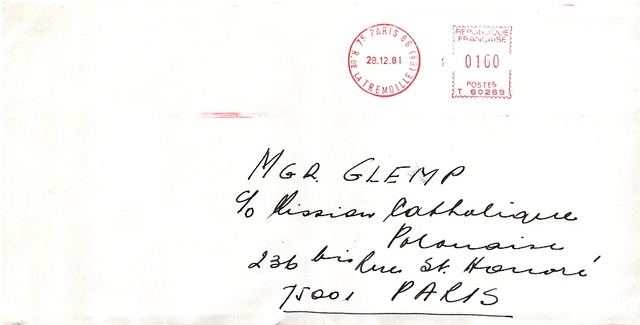 75 PARIS 86 (8E)
28.12.81
R. DE LA TREMOILLE (8E)
REPUBLIQUE
FRANCAISE
0160
POSTES
T 60289
MGR. GLEMP
c/o Mission Catholique
Polonaise
236 bis Rue St. Honoré
75001 PARIS